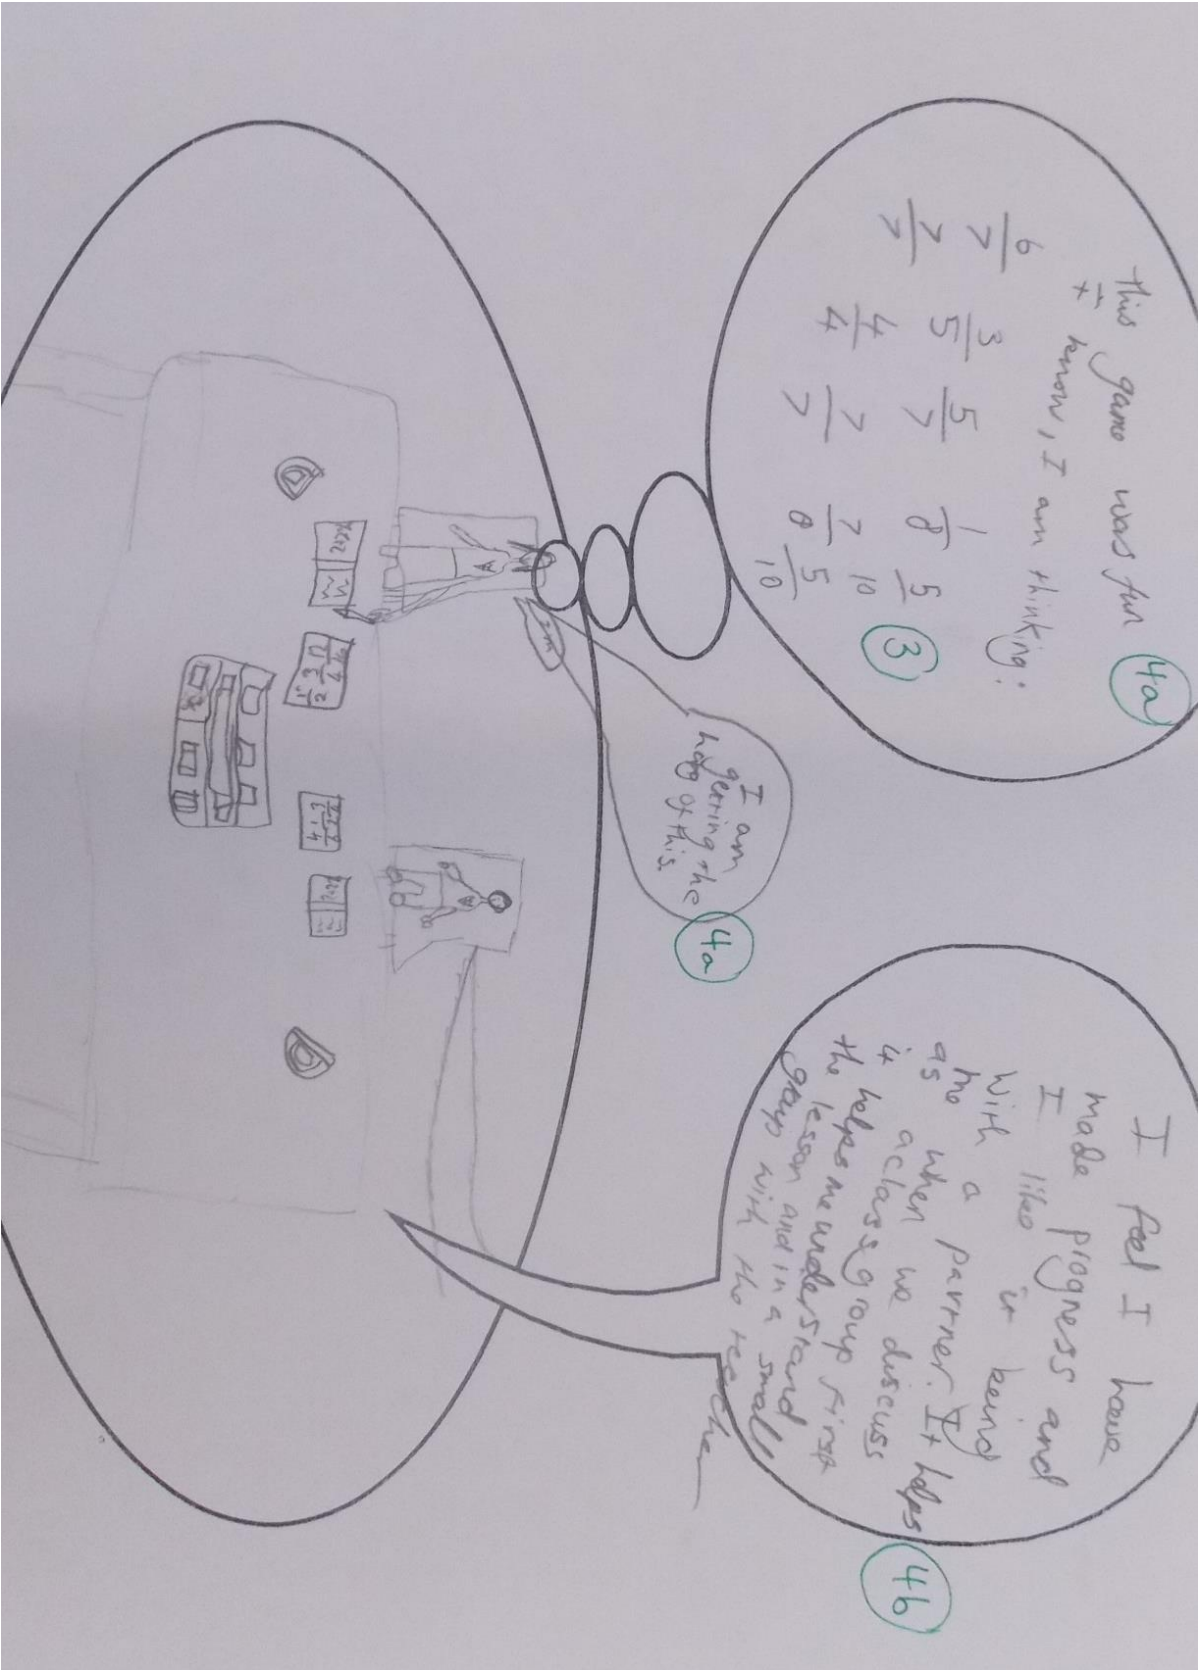 this game was fun 4a
I know, I am thinking:
6/7 3/5 5/7 1/8 5/10
7/7 4/4 7/7 7/8 5/10
3
I am
getting the
hang of this.
4a
I feel I have
made progress and
I like it being
with a partner. It helps
me when we discuss
as a class group first
it helps me understand
the lesson and in a small
group with the teacher
4b